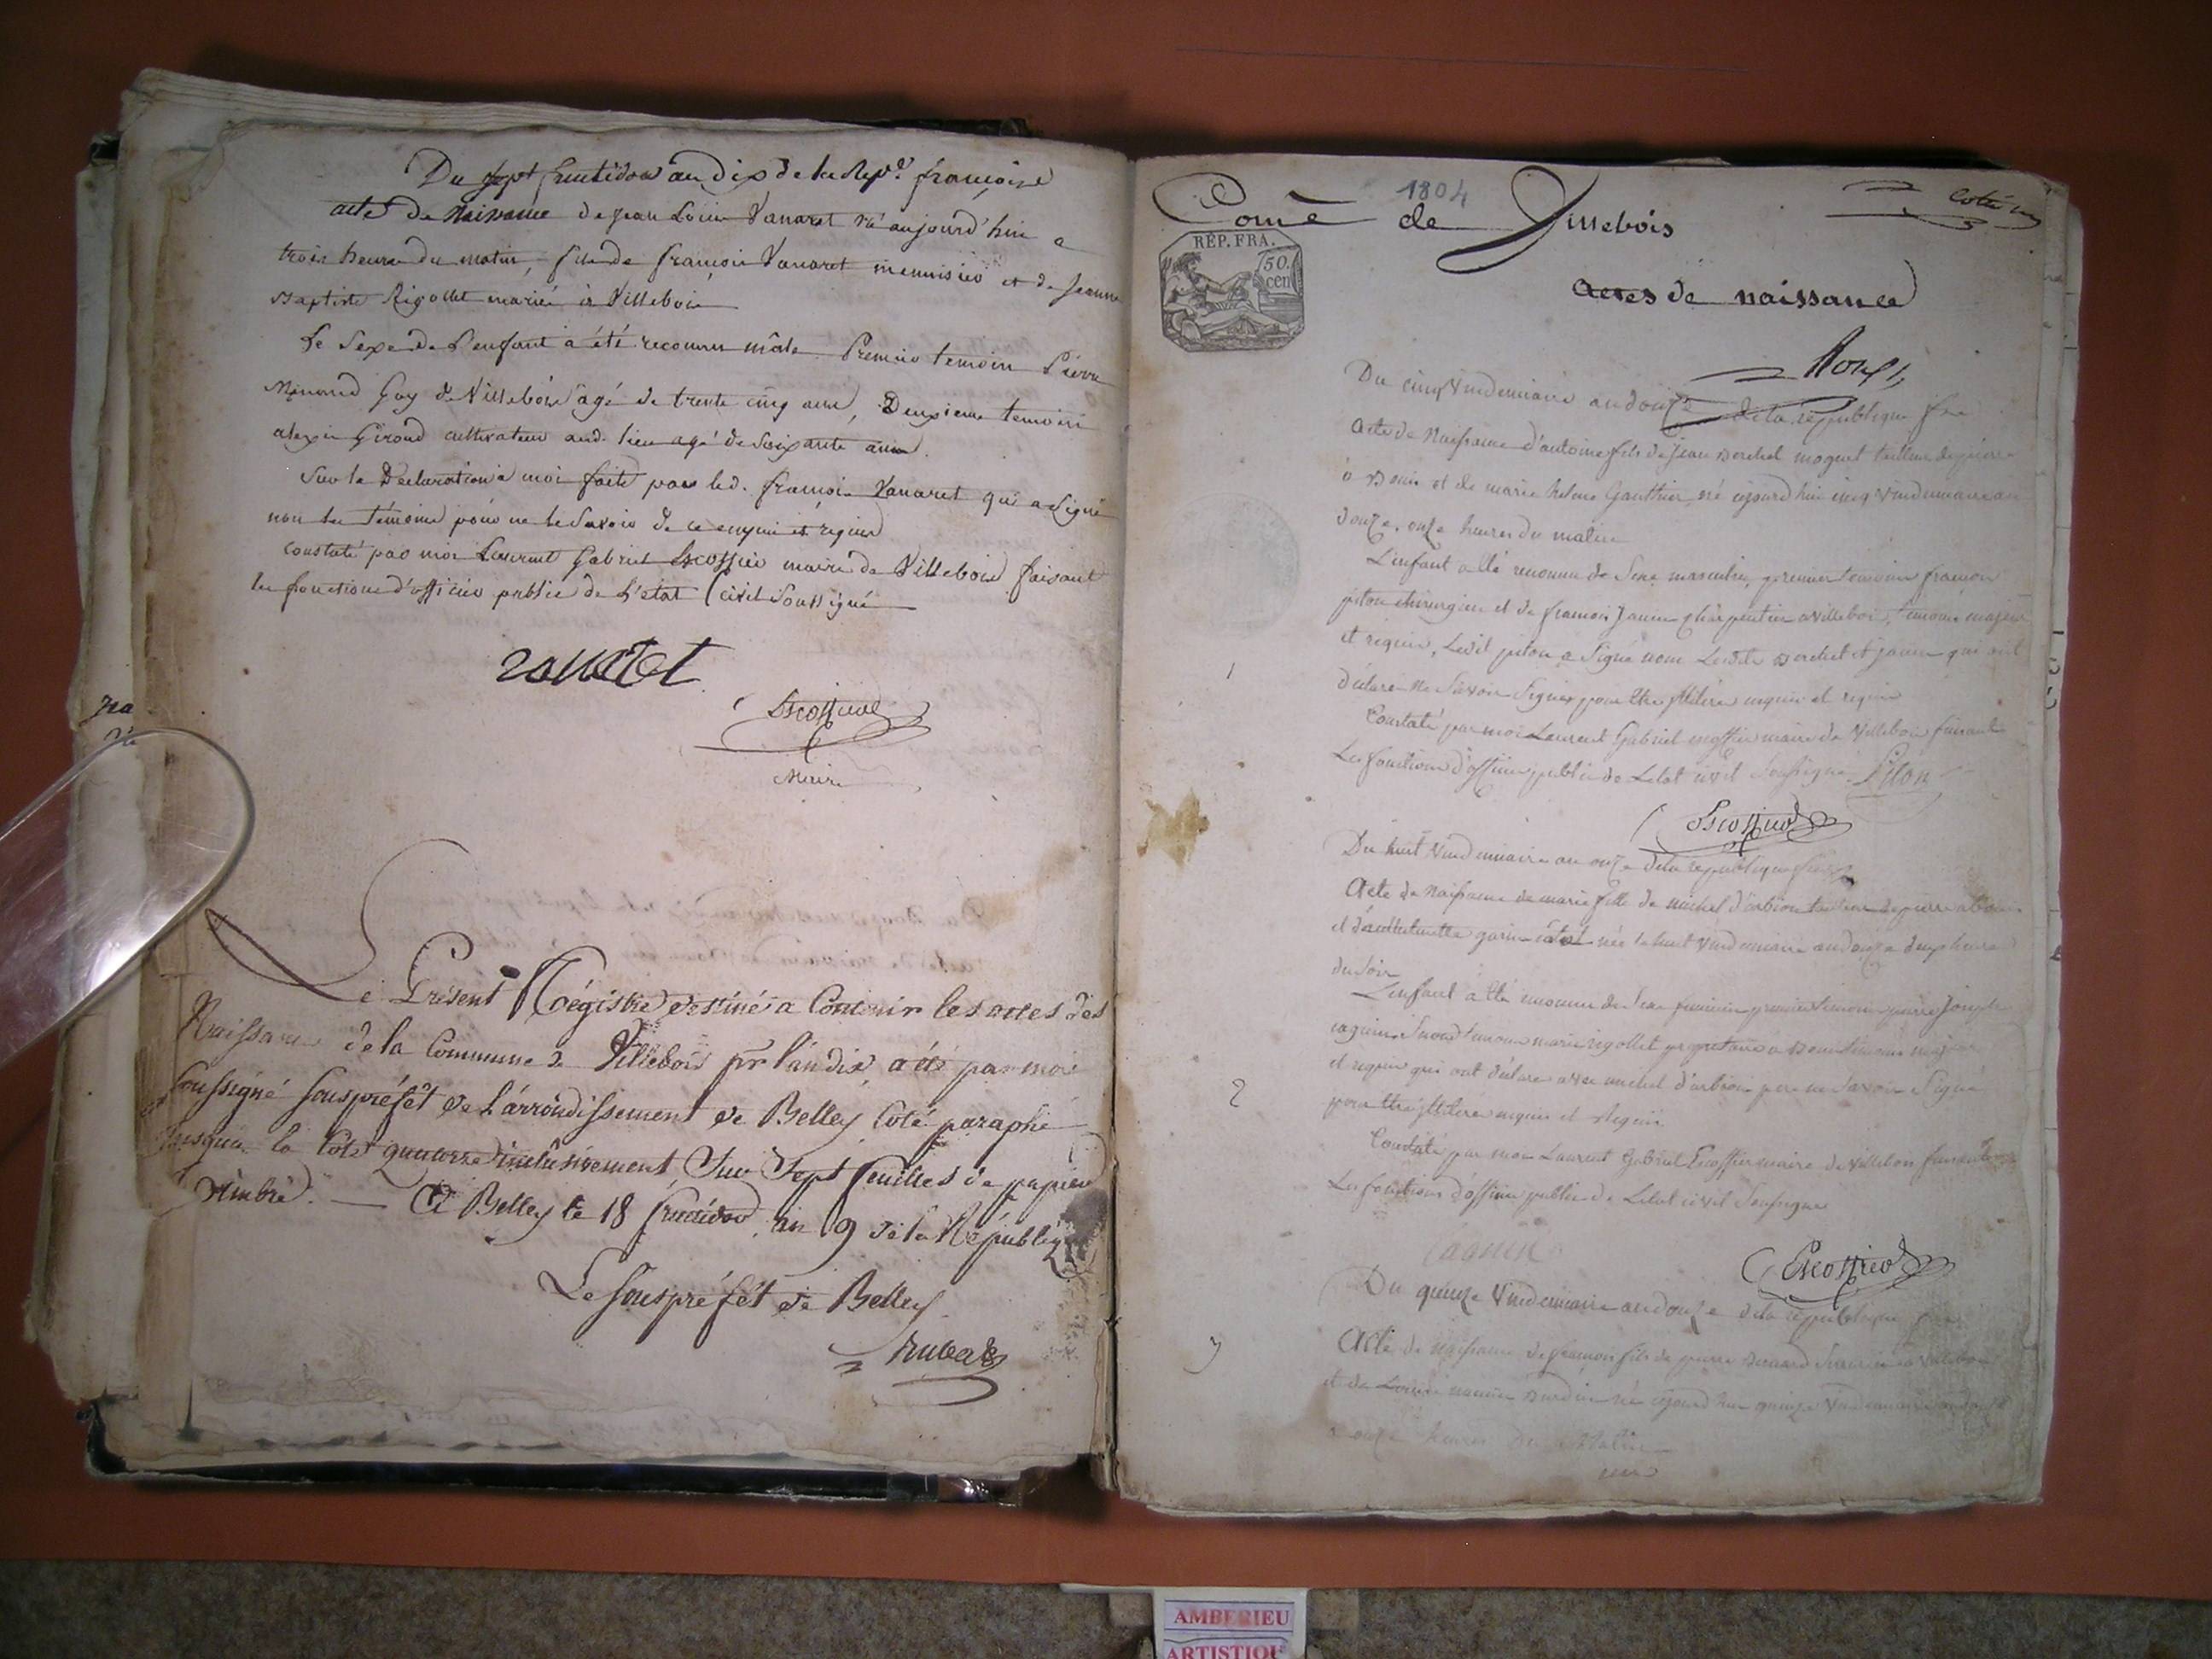 Du sept fructidor an dix de la Rep.e françoise
acte de Naissance de Jean Louis Vanaret né aujourd'hui a
trois heures du matin, fils de françois Vanaret menuisier et de Jeanne
Baptiste Rigollet mariés à Villebois
Le Sexe de l'enfant a été reconnu mâle Premier temoin Pierre
Guy de Villebois âgé de trente cinq ans, Deuxieme temoin
alexis Girond cultivateur aud. lieu agé de soixante ans.
Sur la Declaration à moi faite par led. françois Vanaret qui a signé
non les temoins pour ne le savoir de ce enquis et requis
Constaté par moi Laurent Gabriel Escoffier maire de Villebois faisant
les fonctions d'officier public de l'etat Civil soussigné
vanaret
Escoffier
Maire
Le Présent Régistre destiné a Contenir les actes des
Naissances de la Commune de Villebois pr l'an dix, a été par moi
soussigné souspréfét de l'arrondissement de Belley Coté paraphé
jusqu'a la Cote quatorze inclusivement, Sur Sept feuilles de papier
timbré. — A Belley le 18 fructidor, an 9 de la République
Le souspréfét de Belley
1804
Comè de Villebois
REP. FRA.
50. cen
actes de naissance
Du cinq Vendemiaire an douze de la republique
Acte de Naissance d'antoine fils de Jean Berchet moguet tailleur de pierre
a Bouis et de marie helene Gauthier, né ajourd'hui cinq vendemiaire an
douze, onze heures du matin
L'enfant a été reconnu de sexe masculin, premier temoin françois
piton chirurgien et de francois Janin charpentier a villebois, temoins majeurs
et requis, Ledit piton a signé non Lesdits Berchet et janin qui ont
declaré ne savoir signer pour etre illitéré enquis et requis
Constaté par moi Laurent Gabriel escoffier maire de Villebois faisant
Les fonctions d'officier public de Letat civil Soussigné Piton
1
Escoffier
Du huit Vendemiaire an onze de la republique
Acte de Naissance de marie fille de michel d'arbion tailleur de pierre a Bouis
et garin née le huit vendemiaire an douze deux heures
du soir
L'enfant a été reconnu de sexe feminin premier temoin pierre Joseph
cagnin, second temoin marie rigollet propriétaire a Bouis temoins majeurs
et requis qui ont declaré avec michel d'arbion pere ne savoir Signer
pour etre illiteré enquis et requis
2
Constaté par moi Laurent Gabriel Escoffier maire de villebois faisant
Les fonctions d'officier public de Letat civil Soussigné
Escoffier
Du quinze Vendemiaire an douze de la republique
Acte de Naissance de francois fils de pierre a villebois
3
et de né ajourd'hui quinze Vendemiaire an douze
a onze heures du Matin
AMBERIEU
ARTISTIQUE